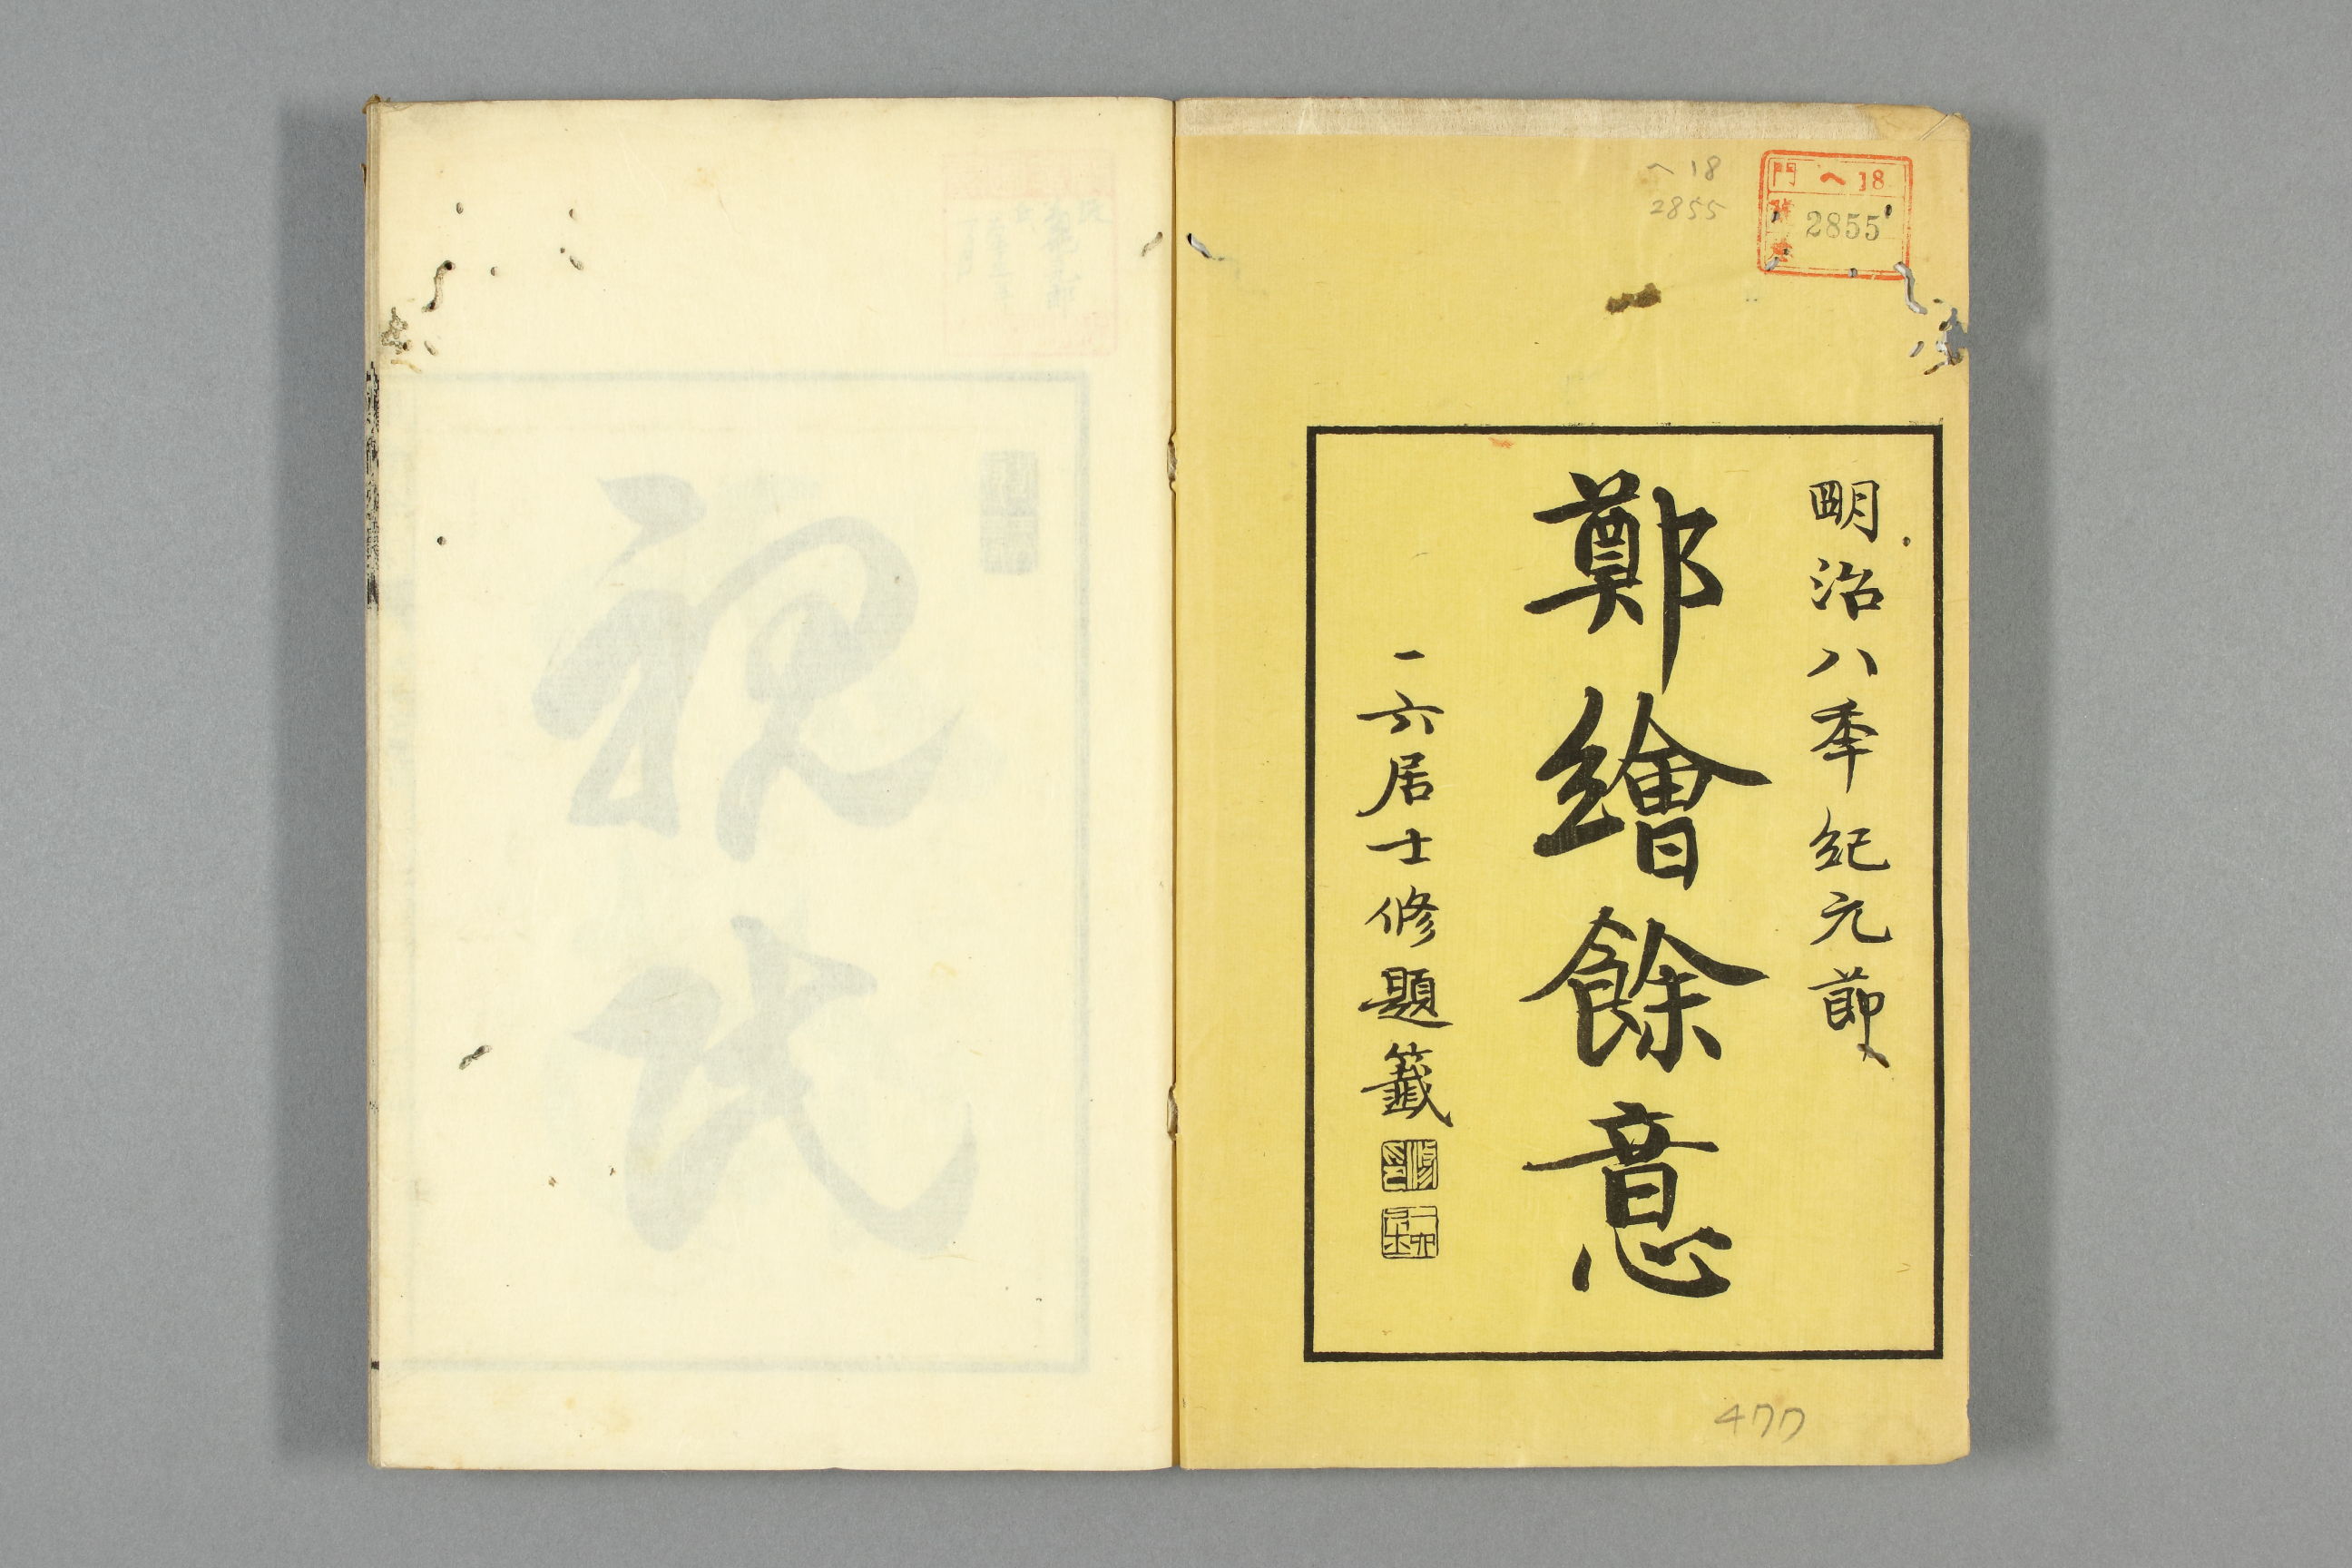 ヘ18
2855
門 ヘ 18
號 2855
明治八季紀元節
鄭繪餘意
一六居士修題籤
477